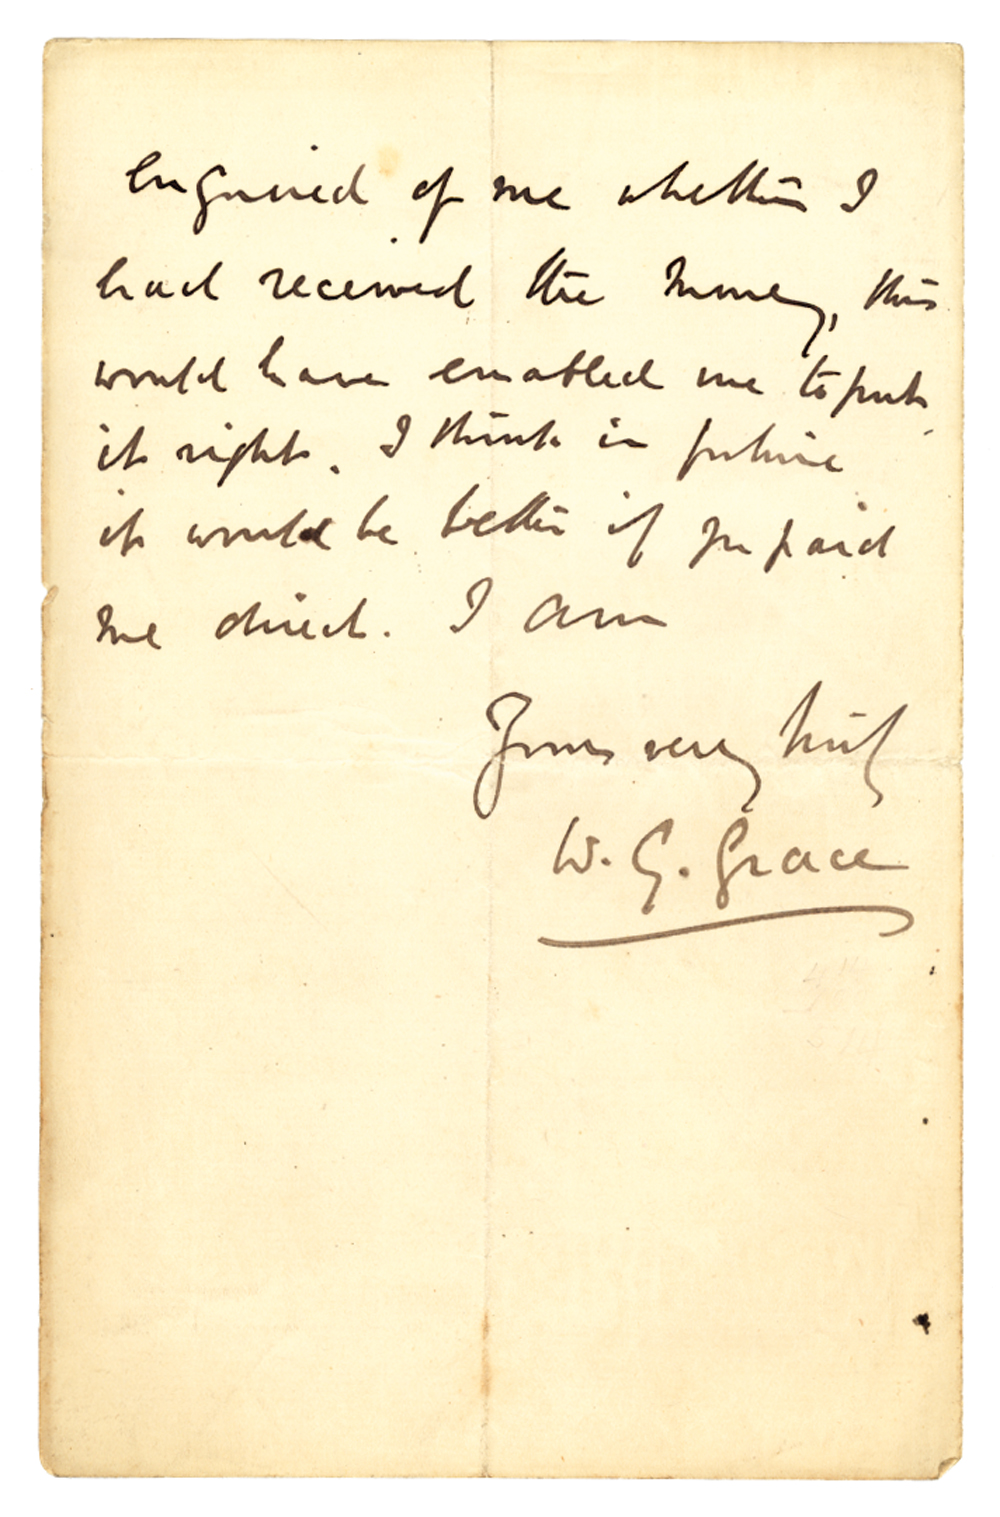 enquired of me whether I
had received the money, this
would have enabled me to put
it right. I think in future
it would be better if you paid
me direct. I am
Yours very truly
W. G. Grace